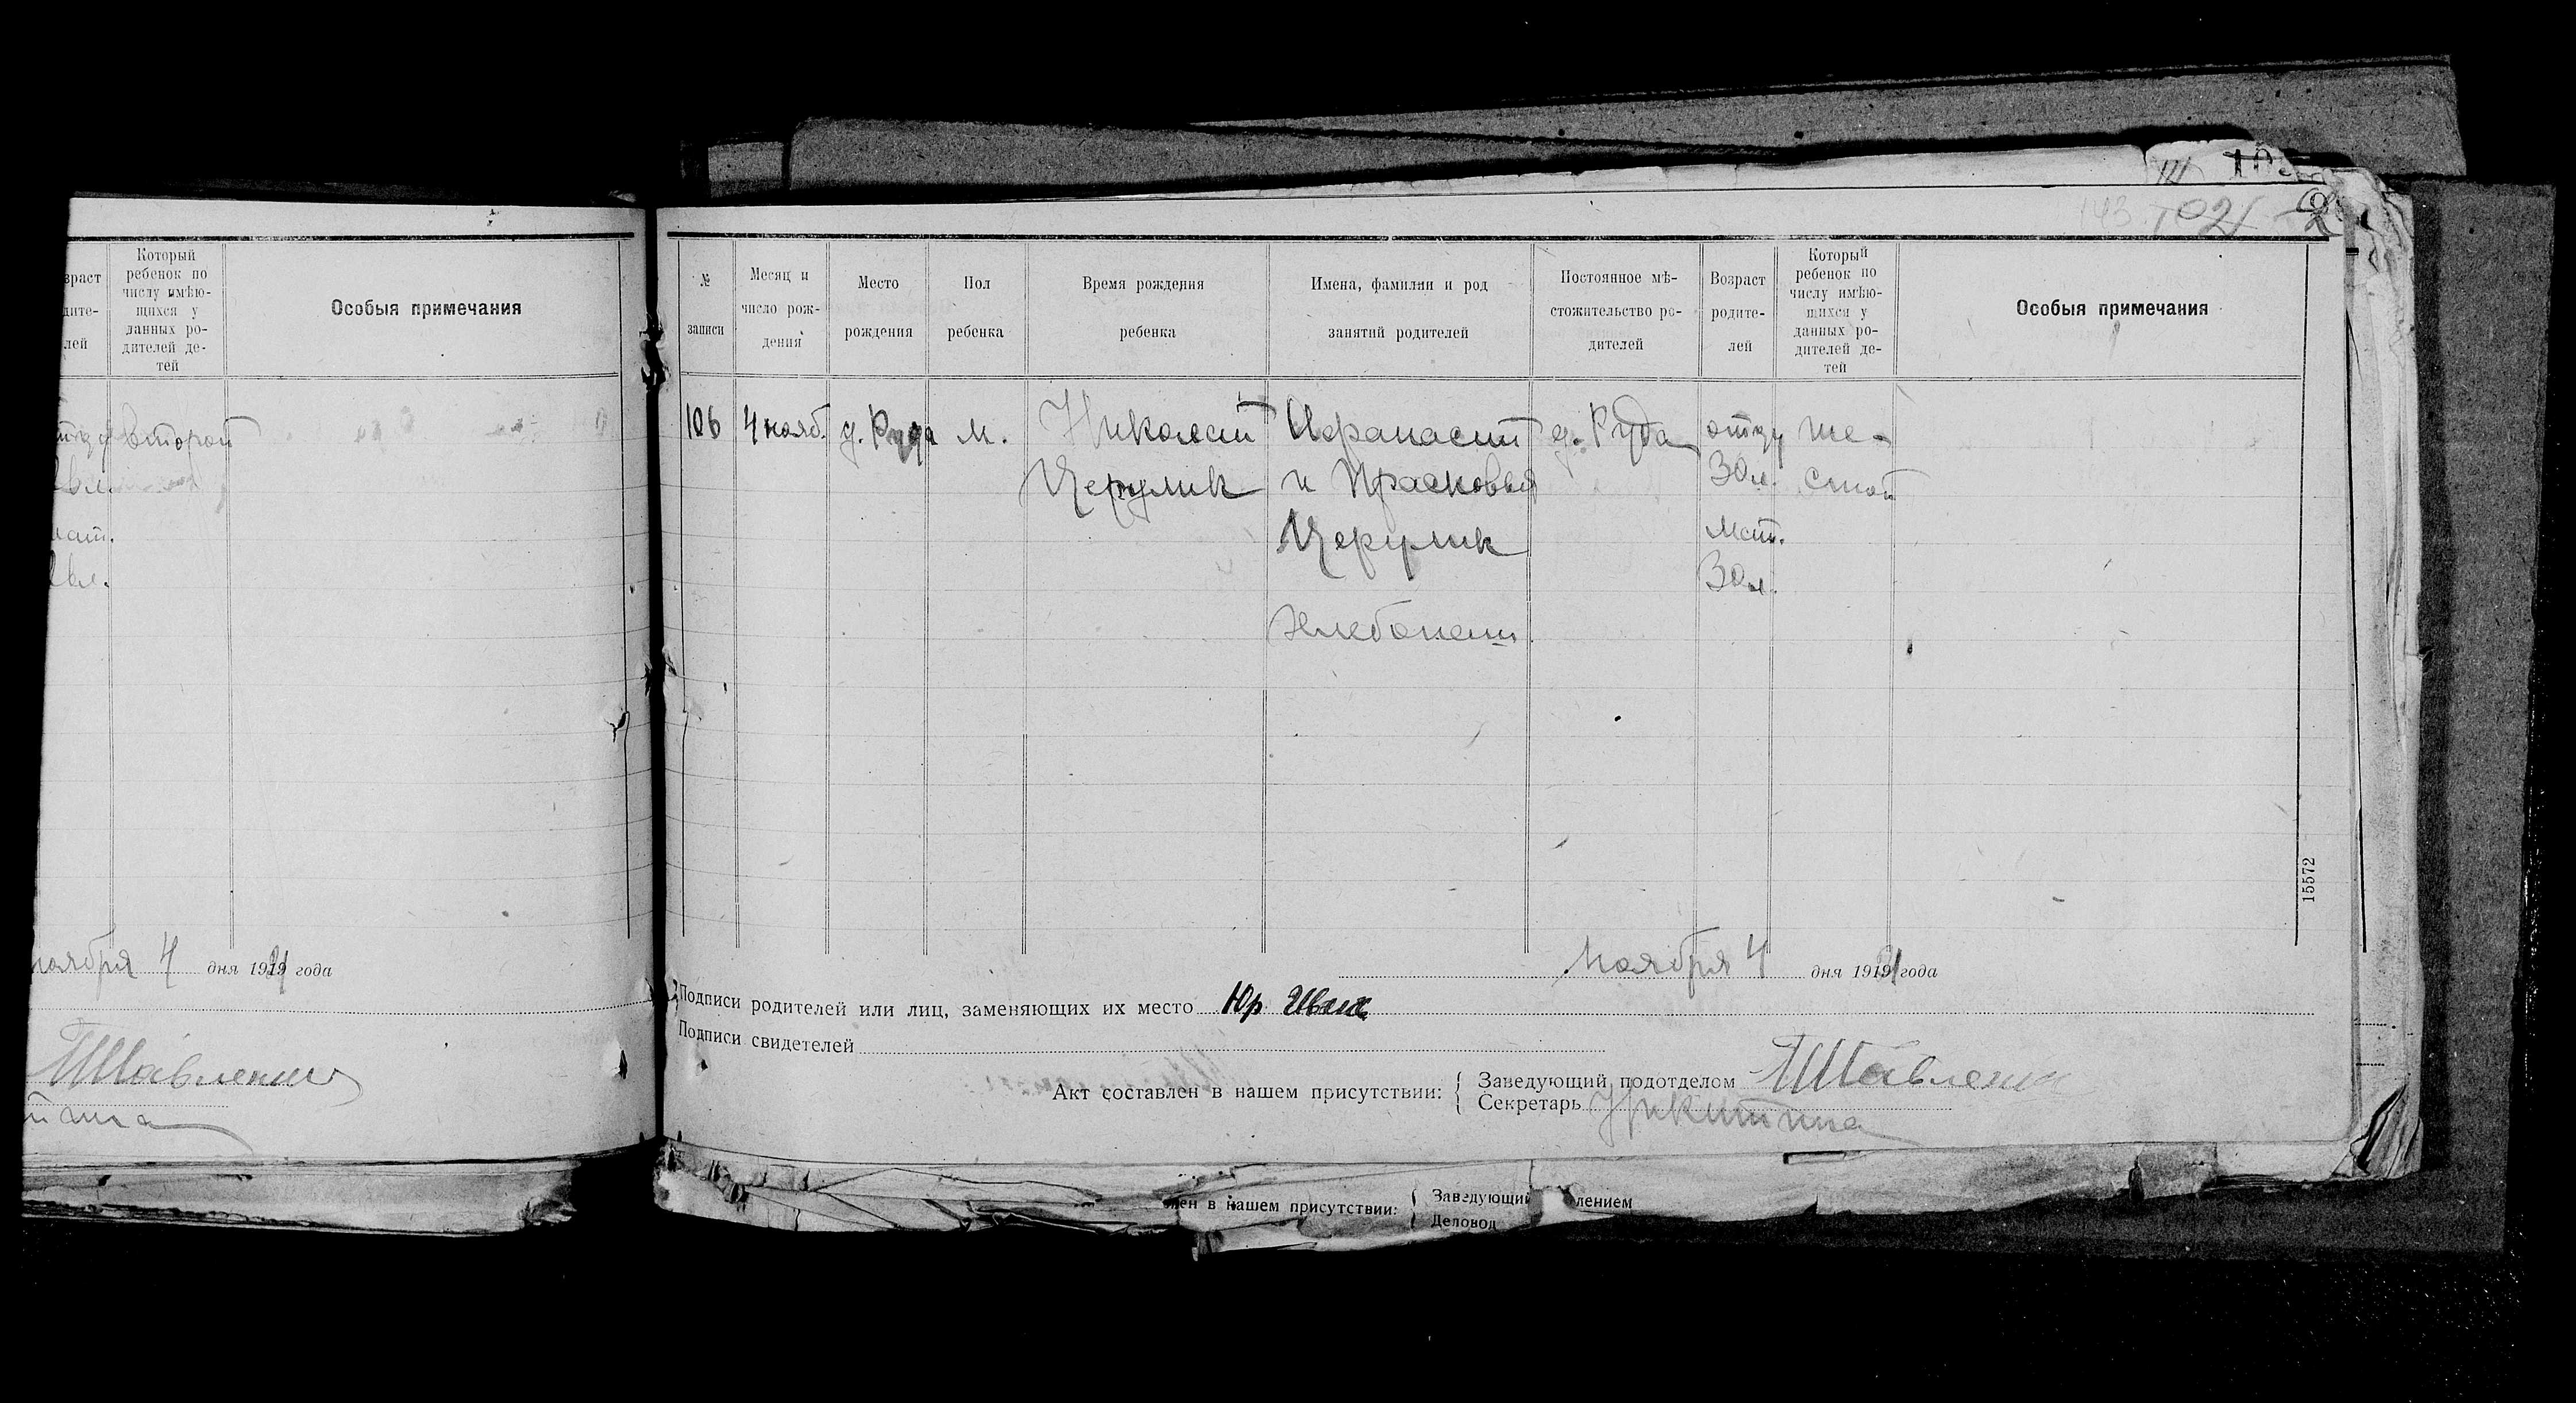 Который
ребенок по
числу имѣю-
щихся у
данных ро-
дителей де-
тей
Особыя примечания
второй
ноября 4 дня 1919 года
№
записи
Месяц и
число рож-
дения
Место
рождения
Пол
ребенка
Время рождения
ребенка
Имена, фамилии и род
занятий родителей
Постоянное мѣ-
стожительство ро-
дителей
Возраст
родите-
лей
Который
ребенок по
числу имѣю-
щихся у
данных ро-
дителей де-
тей
Особыя примечания
106
4 нояб.
д. Руда
м.
Николай
Церулик
Афанасий
и Прасковья
Церулик
Хлебопаш.
д. Руда
отцу
30 л.
мат.
30 л.
ше-
стой
15572
Ноября 4 дня 1919 года
Подписи родителей или лиц, заменяющих их место Юр
Подписи свидетелей
Акт составлен в нашем присутствии:
Заведующий подотделом
Секретарь Никитина
в нашем присутствии:
Заведующий
лением
Деловод